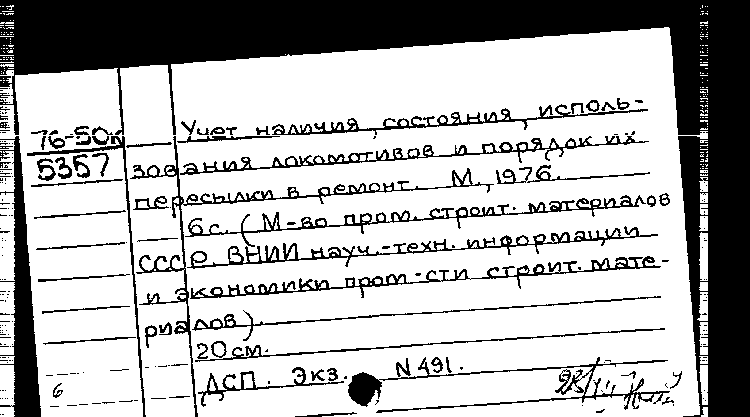 76-50к
5357
Учет наличия, состояния, исполь-
зования локомотивов и порядок их
пересылки в ремонт. М., 1976.
6с. (М-во пром. строит. материалов
СССР. ВНИИ науч.-техн. информации
и экономики пром-сти строит. мате-
риалов).
20см.
ДСП. Экз. N 491.
6